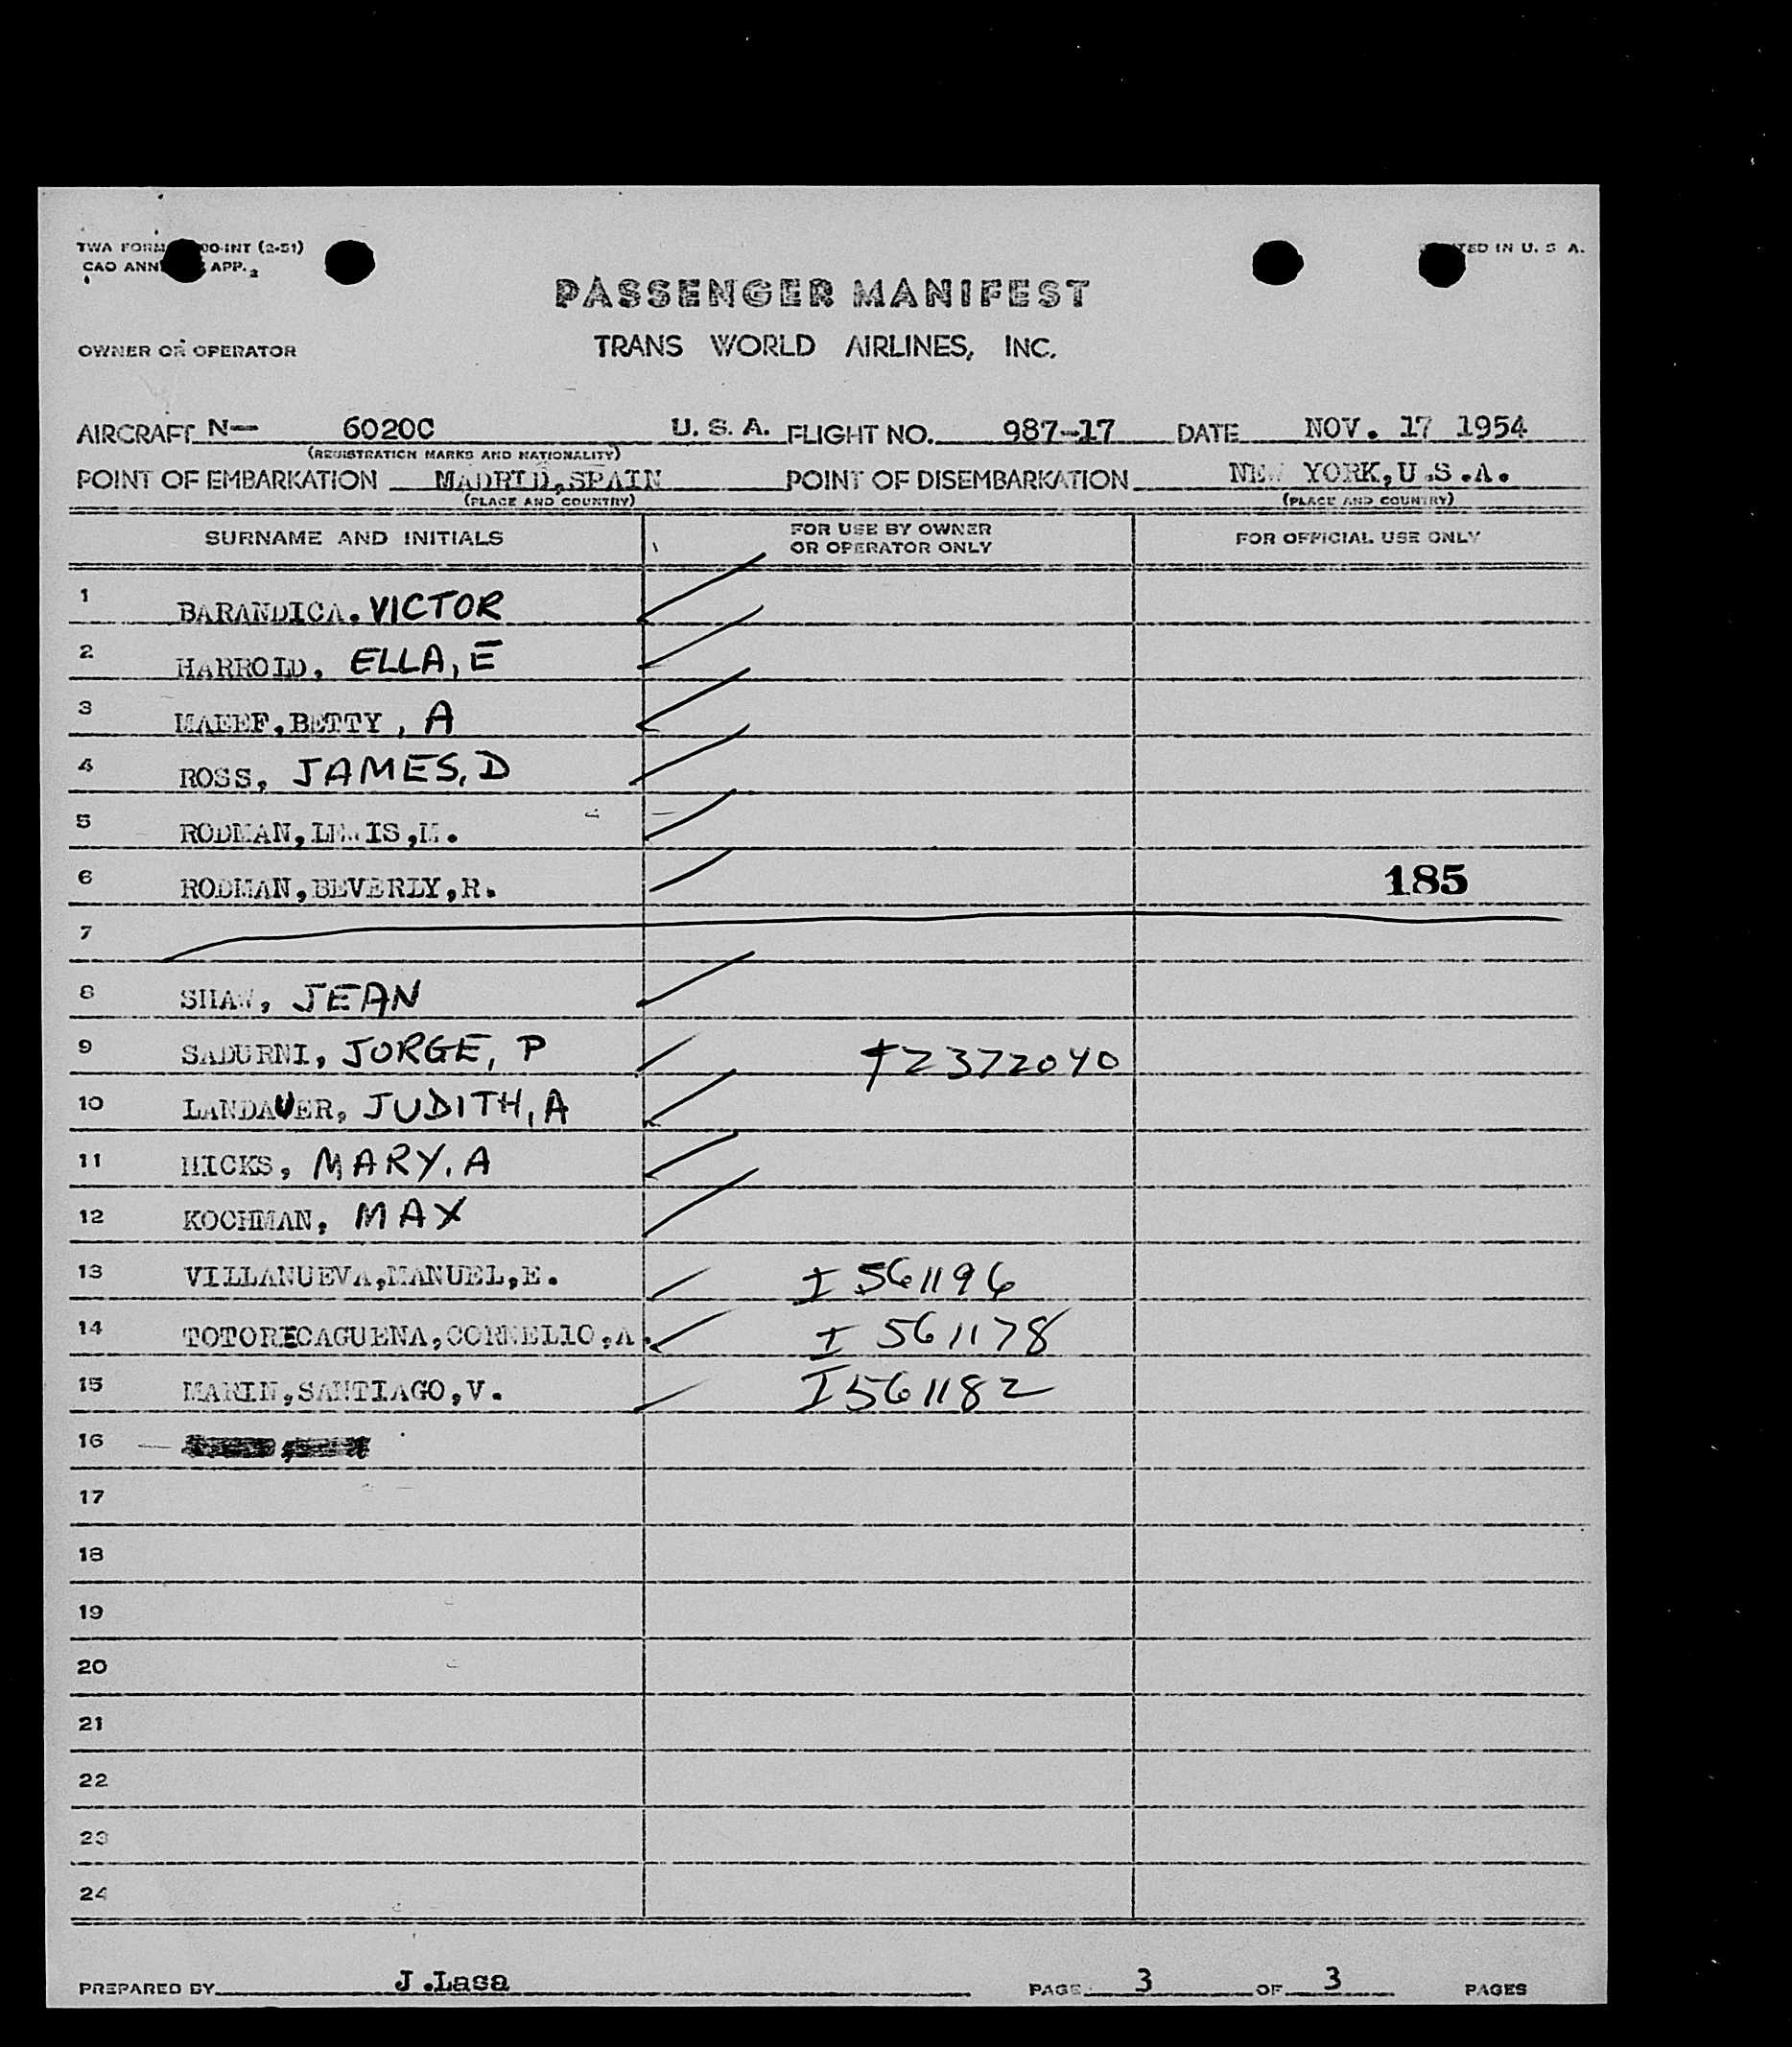 TWA FORM 00-INT (2-51)
CAO ANN APP. 2
TED IN U. S A.
PASSENGER MANIFEST
OWNER OR OPERATOR
TRANS WORLD AIRLINES, INC.
AIRCRAFT N— 6020C U. S. A. FLIGHT NO. 987-17 DATE NOV. 17 1954
(REGISTRATION MARKS AND NATIONALITY)
POINT OF EMBARKATION MADRID,SPAIN POINT OF DISEMBARKATION NEW YORK,U.S.A.
(PLACE AND COUNTRY) (PLACE AND COUNTRY)
SURNAME AND INITIALS FOR USE BY OWNER OR OPERATOR ONLY FOR OFFICIAL USE ONLY
1 BARANDICA. VICTOR
2 HARROLD, ELLA, E
3 MAEEF,BETTY, A
4 ROSS, JAMES, D
5 RODMAN,LEWIS,M.
6 RODMAN,BEVERLY,R. 185
7
8 SHAW, JEAN
9 SADURNI, JORGE, P 2372040
10 LANDAUER, JUDITH, A
11 HICKS, MARY. A
12 KOCHMAN, MAX
13 VILLANUEVA,MANUEL,E. I 561196
14 TOTORICAGUENA,CORNELIO,A. I 561178
15 MARIN,SANTIAGO,V. I561182
16
17
18
19
20
21
22
23
24
PREPARED BY J.Lasa PAGE 3 OF 3 PAGES